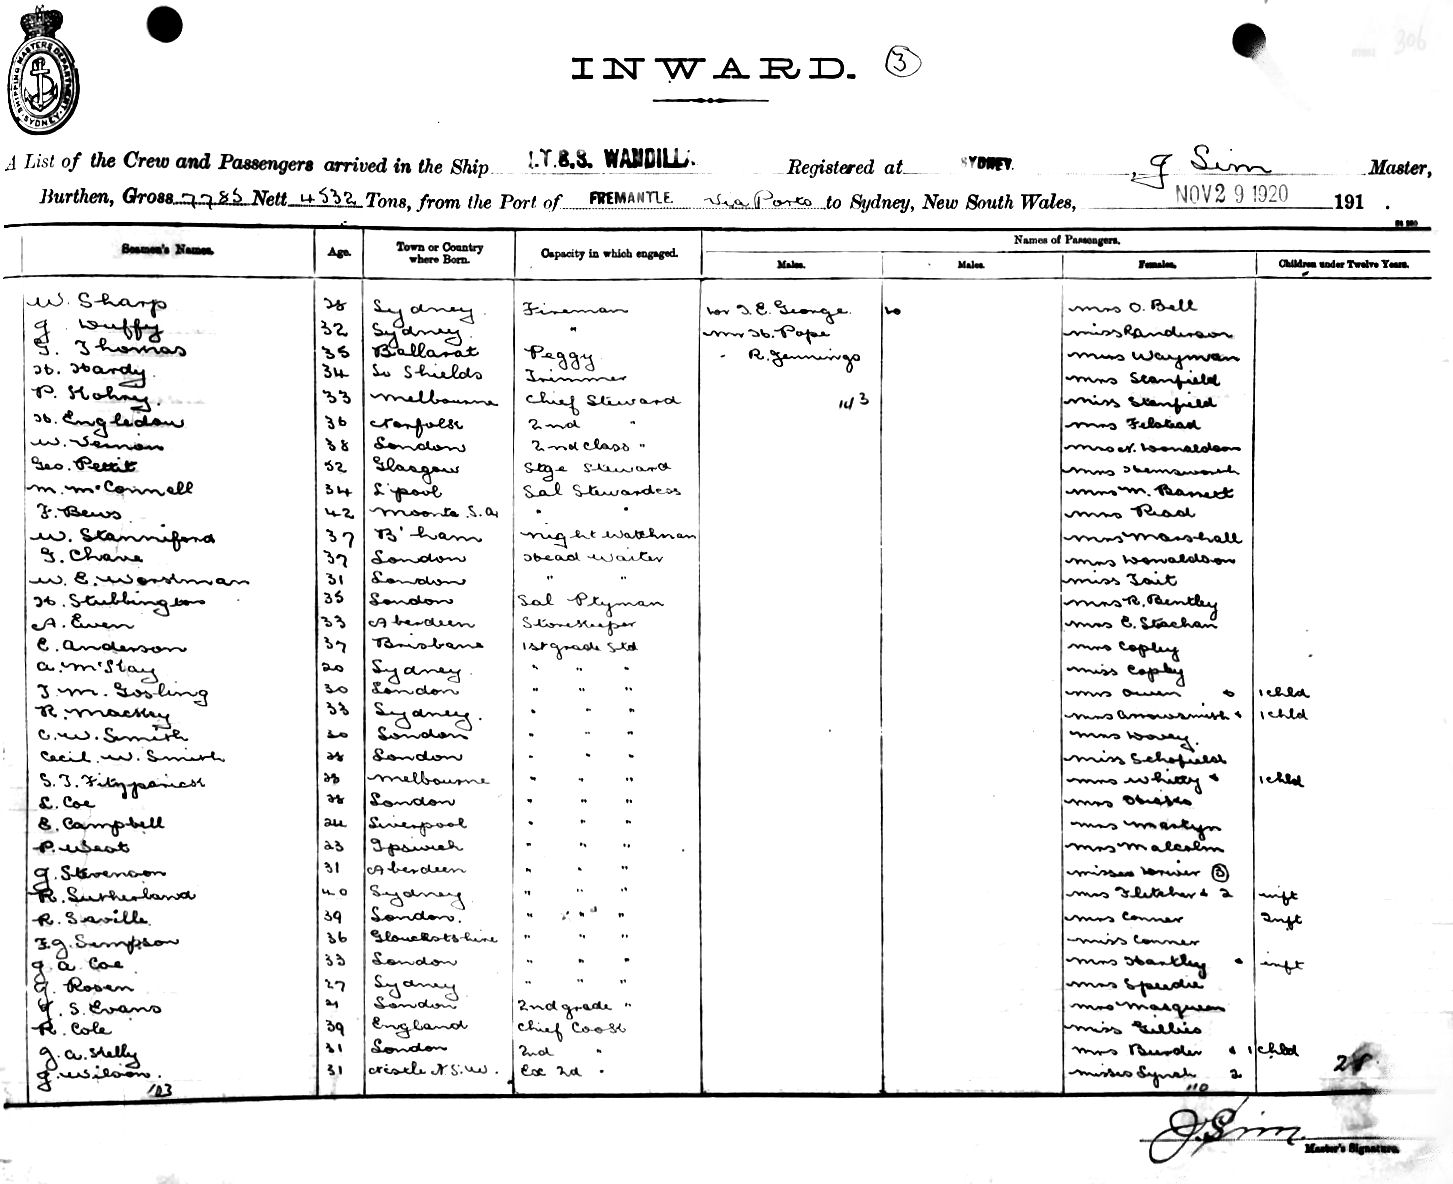 306
SHIPPING MASTERS DEPARTMENT SYDNEY
INWARD. 3
A List of the Crew and Passengers arrived in the Ship I.T.S.S. WANDILLA. Registered at SYDNEY. J Sim Master,
Burthen, Gross 7785 Nett 4532 Tons, from the Port of FREMANTLE Via Ports to Sydney, New South Wales, NOV 29 1920 191 .
Names of Passengers.
Seamen's Names. Age. Town or Country where Born. Capacity in which engaged. Males. Males. Females. Children under Twelve Years.
W. Sharp 28 Sydney Fireman Mr T. E. George Mrs O. Bell
J Duffy 32 Sydney " Mr H. Pope Miss Randerson
T. Thomas 35 Ballarat Peggy " R. Jennings Miss Wayman
H. Hardy 34 So Shields Trimmer Mrs Stanfield
P. 33 Melbourne Chief Steward 143 Miss Stanfield
H. Engledow 36 Norfolk 2nd " Mrs Felstead
W. Vernon 38 London 2nd Class " Mrs N. Donaldson
Geo. Pettit 52 Glasgow Stge Steward Mrs Hemsworth
M. McConnell 34 L'pool Sal Stewardess Mrs M. Barrett
F. Bews 42 Moonta S.A. " " Mrs Read
W. Stanniford 37 B'ham Night Watchman Mrs Marshall
G. Chave 37 London Head Waiter Mrs Donaldson
W. E. Worstman 31 London " " Miss Tait
H. Stubbington 35 London Sal Ptyman Mrs R. Bentley
A. Ewen 33 Aberdeen Storekeeper Mrs E. Stachan
E. Anderson 37 Brisbane 1st grade Std Mrs Copley
A. McStay 20 Sydney " " " Miss Copley
T. M. Gosling 30 London " " " Mrs Owen & 1 chld
R. Mackey 33 Sydney. " " " Mrs Arrowsmith & 1 chld
C. W. Smith 30 London " " " Mrs Dovey
Cecil W. Smith 28 London " " " Miss Schofield
S. J. Fitzpatrick 28 Melbourne " " " Mrs Whitty & 1 child
L. Coe 28 London " " " Mrs
E. Campbell 24 Liverpool " " " Mrs Martyn
P. West 23 Ipswich " " " Mrs Malcolm
J. Stevenson 31 Aberdeen " " " Misses Driver 3
R. Sutherland 40 Sydney " " " Mrs Fletcher & 2 inft
R. Saville 39 London. " " " Mrs Conner 2nft
F. J. Simpson 36 Gloucestshire " " " Miss Conner
J. A. Coe 33 London " " " Mrs Hartley & inft
J. Rosen 27 Sydney " " " Mrs Speedie
J. S. Evans 21 London 2nd grade " Mrs Masqueen
R. Cole 39 England Chief Cook Miss Gillies
J. A. Kelly 31 London 2nd " Mrs Burder & 1 child
J. Wilson. 31 N'castle N.S.W. Ex 2d " Misses Lynch 2 28
103 110
J. Sim
Master's Signature.